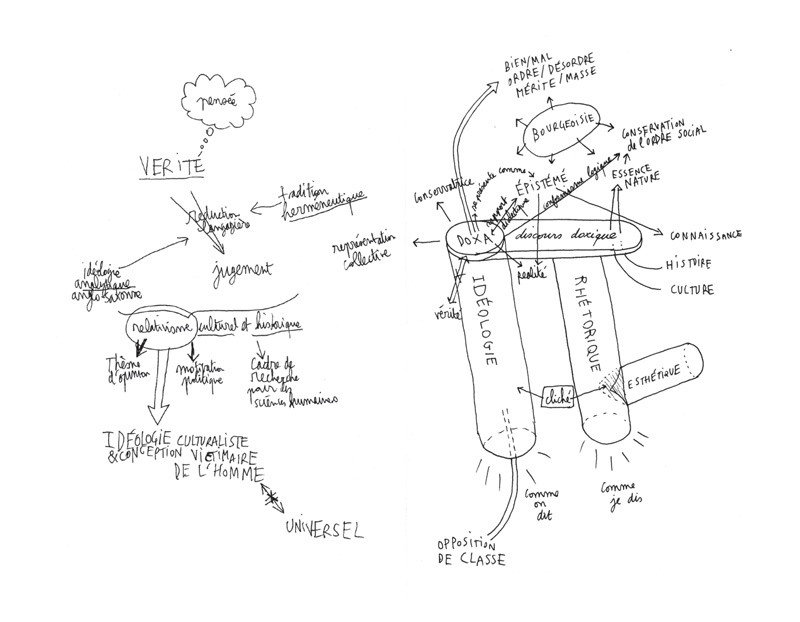 pensée
VERITÉ
réduction
langagière
tradition
herméneutique
idéologie
analytique
anglo-saxonne
jugement
représentation
collective
relativisme culturel et historique
Thème
d'opinion
motivation
politique
Cadre de
recherche
pour les
sciences humaines
IDÉOLOGIE CULTURALISTE
& CONCEPTION VICTIMAIRE
DE L'HOMME
UNIVERSEL
BIEN/MAL
ORDRE/DÉSORDRE
MÉRITE/MASSE
BOURGEOISIE
CONSERVATION
de L'ORDRE SOCIAL
conservatrice
se présente comme
ÉPISTÉMÉ
rapport
dialectique
conformisme logique
ESSENCE
NATURE
DOXA
discours doxique
CONNAISSANCE
HISTOIRE
CULTURE
réalité
vérité
IDÉOLOGIE
RHÉTORIQUE
ESTHÉTIQUE
cliché
comme
on
dit
comme
je dis
OPPOSITION
DE CLASSE